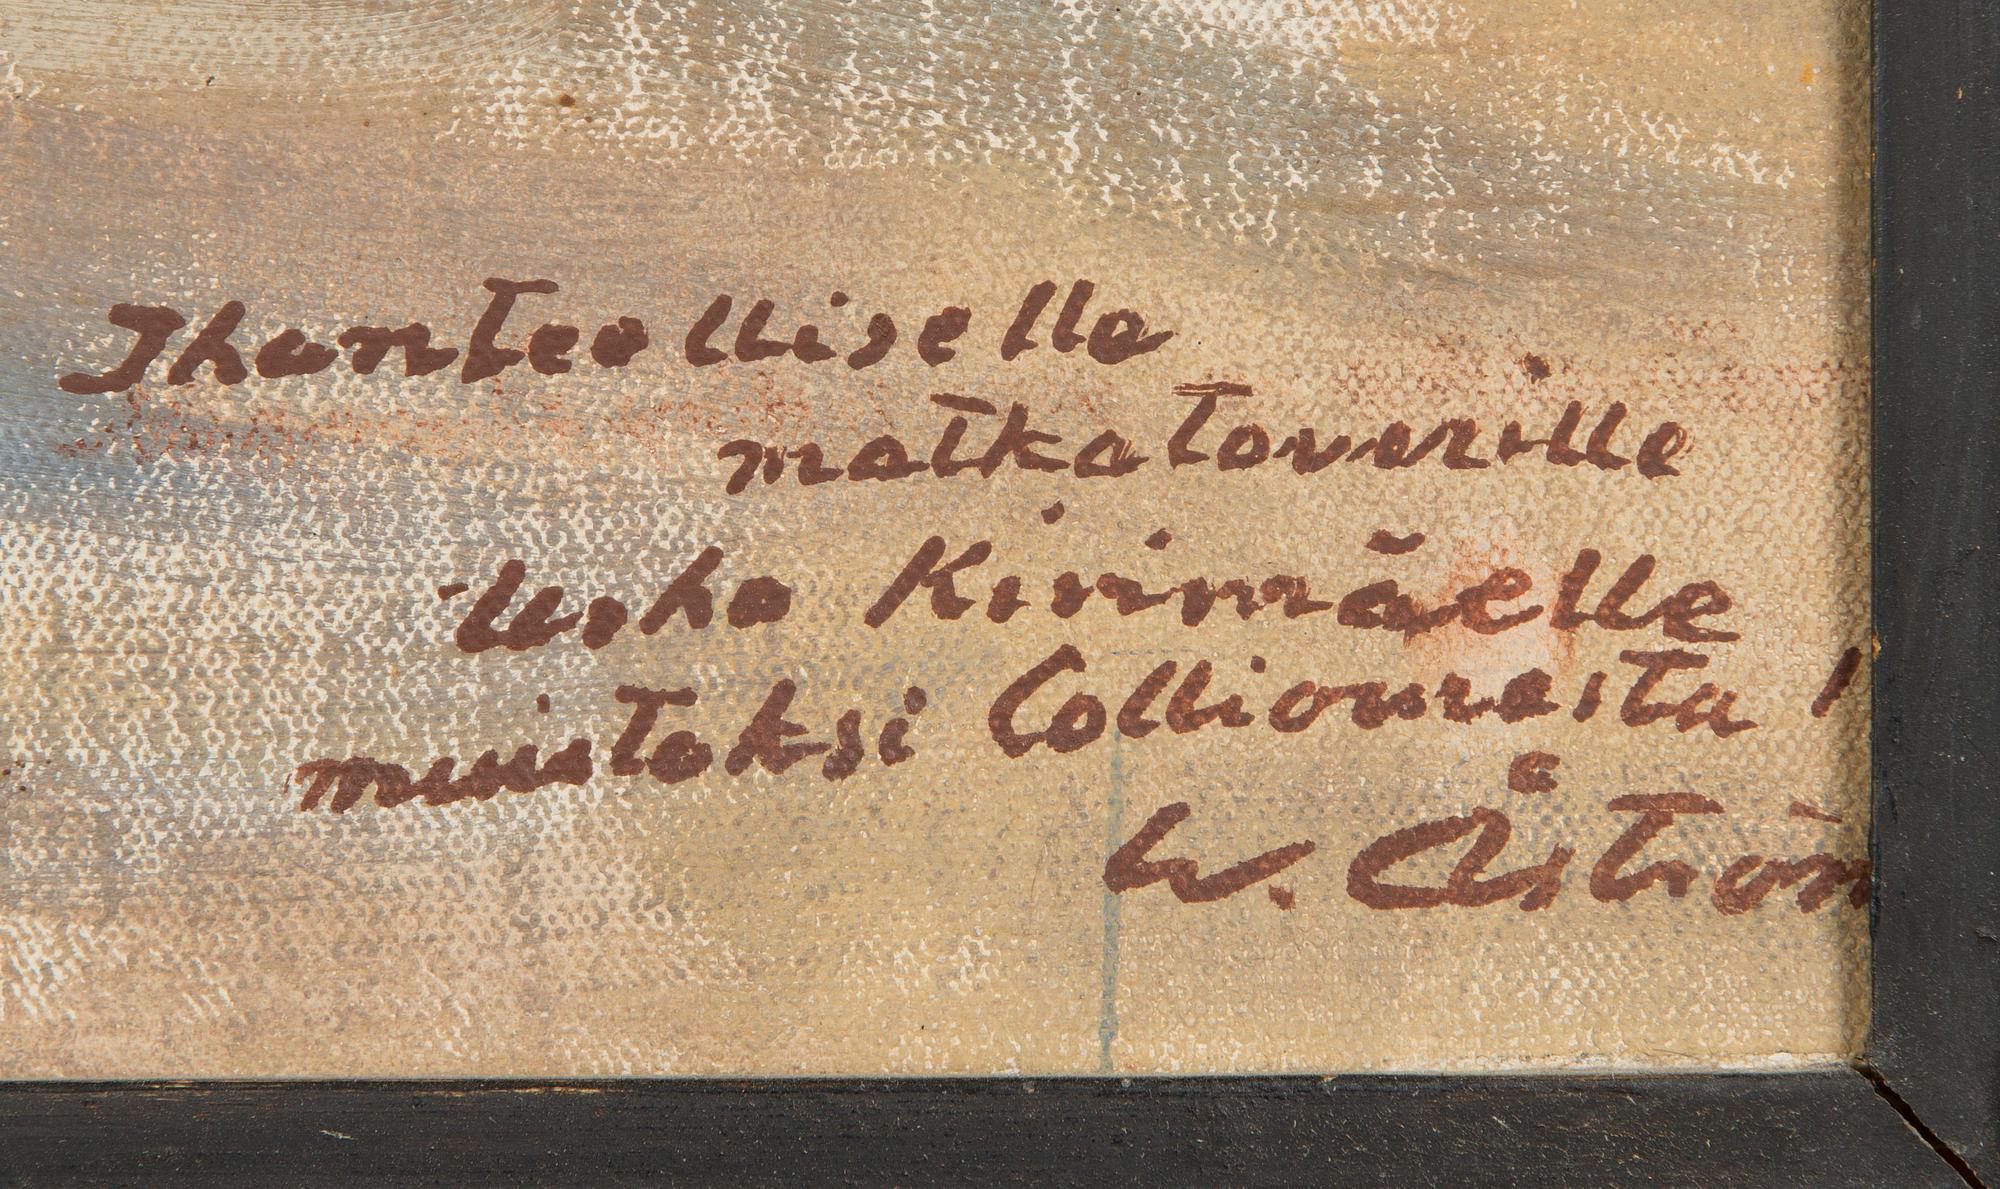 Ihanteelliselle
matkatoverille
Urho Kirimäelle
muistoksi Colliouresta !
W. Åström